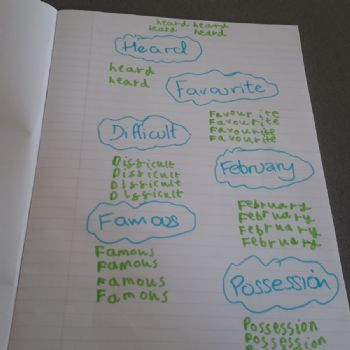 heard heard
heard heard
Heard
heard
heard
Favourite
Favourite
Favourite
Favourite
Favourite
Difficult
Difficult
Difficult
Difficult
Difficult
February
February
February
February
February
Famous
Famous
Famous
Famous
Famous
Possession
Possession
Possession